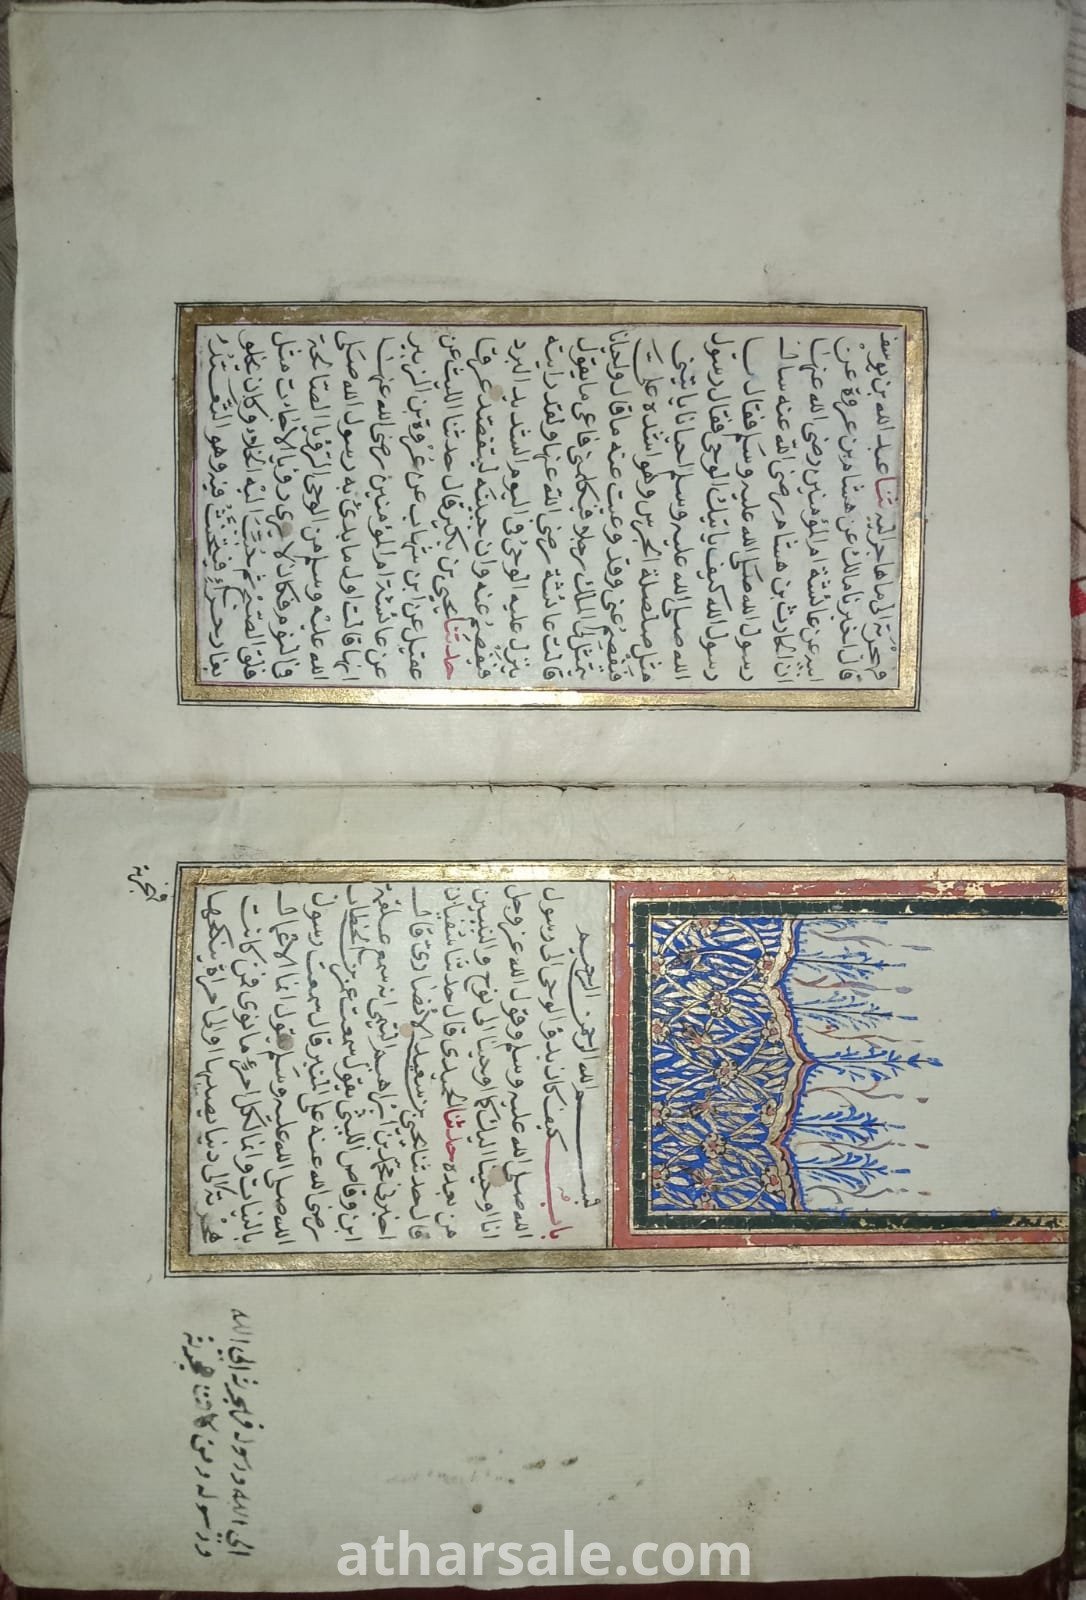 بسم الله الرحمن الرحيم
باب كيف كان بدؤ الوحى الى رسول
الله صلى الله عليه وسلم وقول الله عز وجل
انا اوحينا اليك كما اوحينا الى نوح والنبيين
من بعده حدثنا الحميدى قال حدثنا سفيان
قال حدثنا يحيى بن سعيد الانصارى قال
اخبرنى محمد بن ابراهيم التيمى انه سمع علقمة
ابن وقاص الليثى يقول سمعت عمر بن الخطاب
رضى الله عنه على المنبر قال سمعت رسول
الله صلى الله عليه وسلم يقول انما الاعمال
بالنيات وانما لكل امرئ ما نوى فمن كانت
هجرته الى دنيا يصيبها او الى امراة ينكحها
فهجرته
الى الله ورسوله فهجرته الى الله
ورسوله ومن كانت هجرته
فهجرته الى ما هاجر اليه ثنا عبد الله بن يوسف
قال اخبرنا مالك عن هشام بن عروة عن
ابيه عن عائشة ام المؤمنين رضى الله عنها
ان الحارث بن هشام رضى الله عنه سال
رسول الله صلى الله عليه وسلم فقال يا
رسول الله كيف ياتيك الوحى فقال رسول
الله صلى الله عليه وسلم احيانا ياتينى
مثل صلصلة الجرس وهو اشده على
فيفصم عنى وقد وعيت عنه ما قال واحيانا
يتمثل لى الملك رجلا فيكلمنى فاعى ما يقول
قالت عائشة رضى الله عنها ولقد رايته
ينزل عليه الوحى فى اليوم الشديد البرد
فيفصم عنه وان جبينه ليتفصد عرقا
حدثنا يحيى بن بكير قال حدثنا الليث عن
عقيل عن ابن شهاب عن عروة بن الزبير
عن عائشة ام المؤمنين رضى الله عنها
انها قالت اول ما بدئ به رسول الله صلى
الله عليه وسلم من الوحى الرؤيا الصالحة
فى النوم فكان لا يرى رؤيا الا جاءت مثل
فلق الصبح ثم حبب اليه الخلاء وكان يخلو
بغار حراء فيتحنث فيه وهو التعبد
atharsale.com